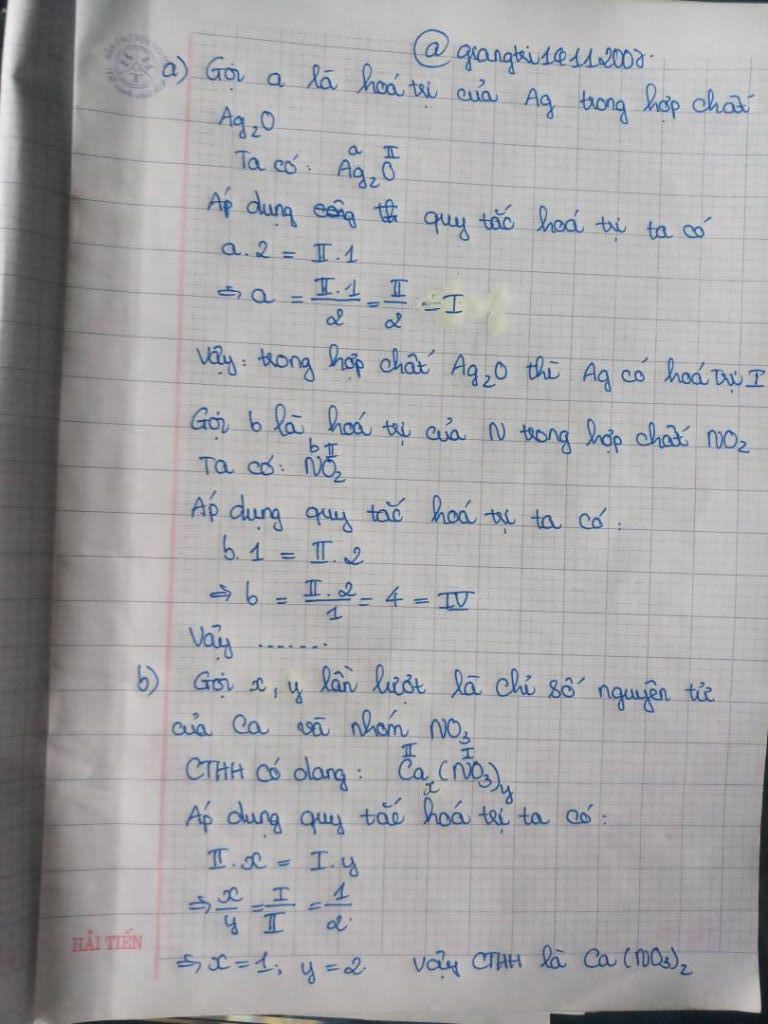 @ giangtri1411.2007.
a) Gọi a là hoá trị của Ag trong hợp chất
Ag₂O
a II
Ta có: Ag₂O
Áp dụng quy tắc hoá trị ta có
a.2 = II.1
⇒ a = II.1/2 = II/2 = I
Vậy: trong hợp chất Ag₂O thì Ag có hoá trị I
Gọi b là hoá trị của N trong hợp chất NO₂
b II
Ta có: NO₂
Áp dụng quy tắc hoá trị ta có:
b.1 = II.2
⇒ b = II.2/1 = 4 = IV
Vậy .......
b) Gọi x, y lần lượt là chỉ số nguyên tử
của Ca và nhóm NO₃
II I
CTHH có dạng: Caₓ(NO₃)y
Áp dụng quy tắc hoá trị ta có:
II.x = I.y
⇒ x/y = I/II = 1/2
HẢI TIẾN
⇒ x=1; y=2. Vậy CTHH là Ca(NO₃)₂